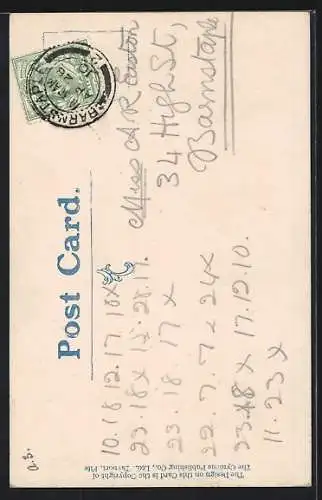 BARNSTAPLE
Post Card.
Miss A R Easton
34 High St,
Barnstaple
10.18 12.17 18 x
23.18 x 15.28.17.
23.18 17 x
22.7.7 x 24 x
23.18 x 17.12.10.
11.23 x
The Design on this Card is the Copyright of
The Cynicus Publishing Co., Ltd., Tayport, Fife